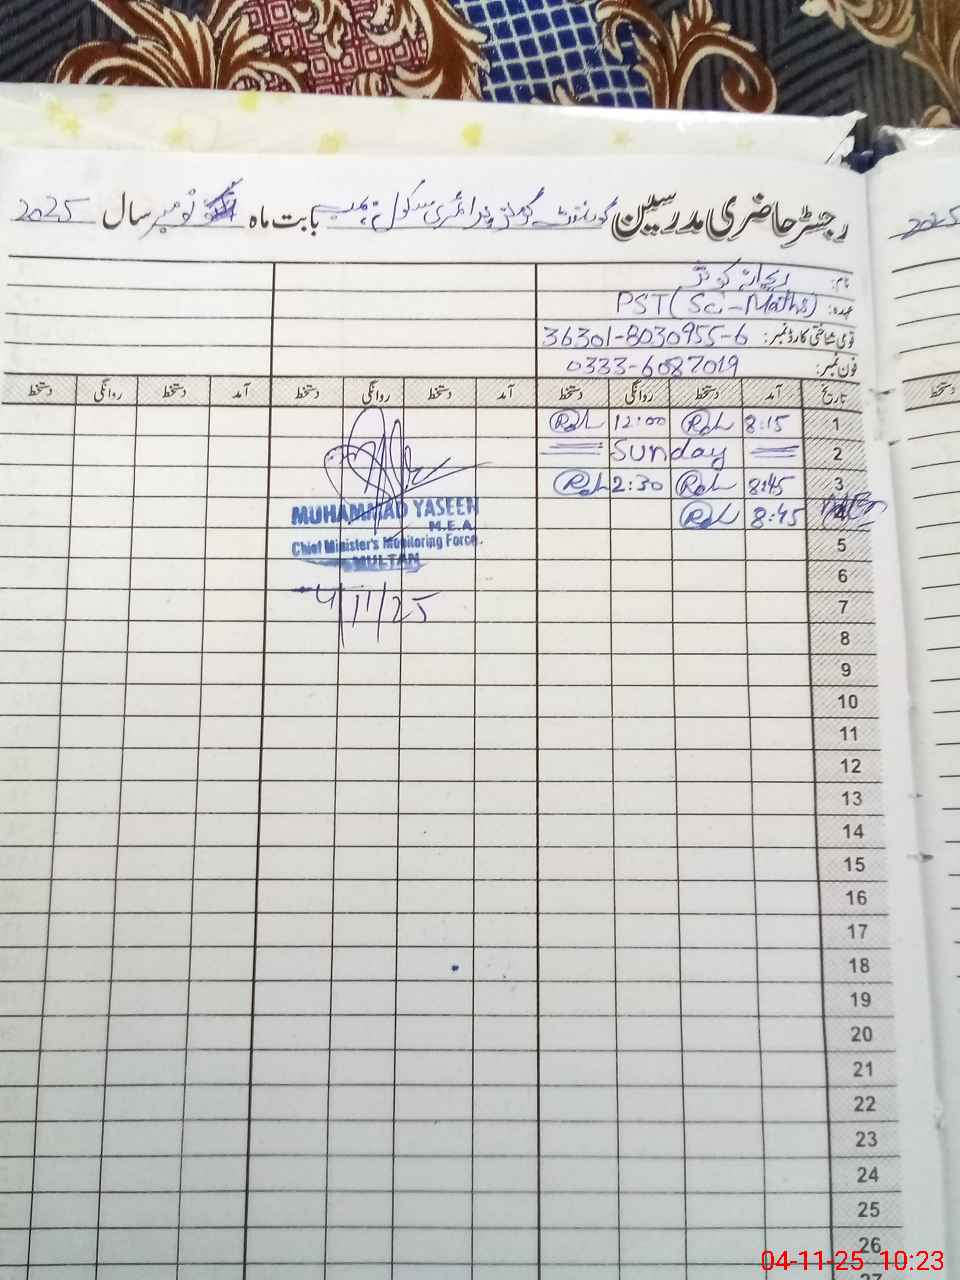 رجسٹر حاضری مدرسین گورنمنٹ گرلز پرائمری سکول بابت ماہ نومبر سال 2025
2025
نام: ریحانہ کوثر
عہدہ: PST (Sci-Maths)
قومی شناختی کارڈ نمبر: 36301-8030955-6
فون نمبر: 0333-6087019
تاریخ آمد دستخط روانگی دستخط آمد دستخط روانگی دستخط آمد دستخط روانگی دستخط
دستخط
1 8:15 12:00
2 Sunday
3 8:45 2:30
4 8:45
MUHAMMAD YASEEN
M.E.A
Chief Minister's Monitoring Force.
MULTAN
4/11/25
5
6
7
8
9
10
11
12
13
14
15
16
17
18
19
20
21
22
23
24
25
26
27
04-11-25 10:23